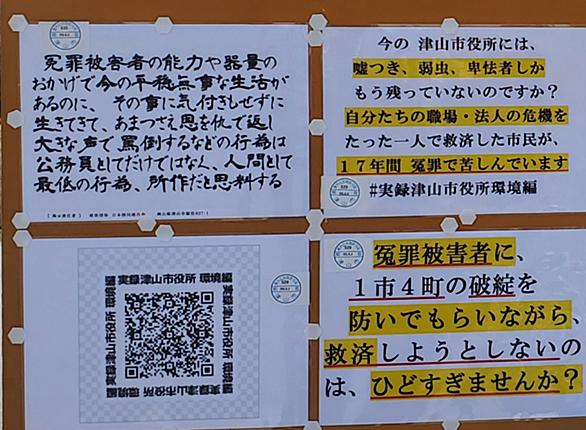 冤罪被害者の能力や器量の
おかげで今の平穏無事な生活が
あるのに、その事に気付きもせずに
生きてきて、あまつさえ恩を仇で返し
大きな声で罵倒するなどの行為は
公務員としてだけではなく、人間として
最低の行為、所作だと思料する
今の 津山市役所には、
嘘つき、弱虫、卑怯者しか
もう残っていないのですか?
自分たちの職場・法人の危機を
たった一人で救済した市民が、
17年間 冤罪で苦しんでいます
#実録津山市役所環境編
実録津山市役所 環境編
実録津山市役所 環境編
実録津山市役所 環境編
実録津山市役所 環境編
冤罪被害者に、
1市4町の破綻を
防いでもらいながら、
救済しようとしないの
は、ひどすぎませんか?